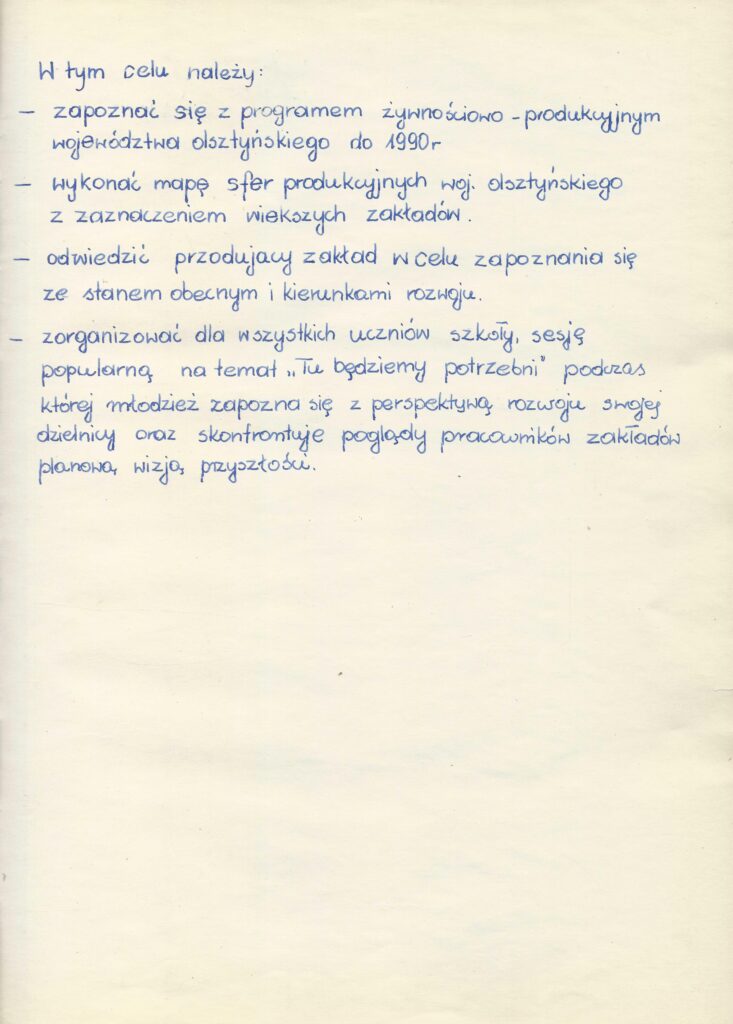 W tym celu należy:
– zapoznać się z programem żywnościowo-produkcyjnym
województwa olsztyńskiego do 1990r
– wykonać mapę sfer produkcyjnych woj. olsztyńskiego
z zaznaczeniem większych zakładów.
– odwiedzić przodujacy zakład w celu zapoznania się
ze stanem obecnym i kierunkami rozwoju.
– zorganizować dla wszystkich uczniów szkoły, sesję
popularną na temat „Tu będziemy potrzebni" podczas
której młodzież zapozna się z perspektywą rozwoju swojej
dzielnicy oraz skonfrontuje poglądy pracowników zakładów
planową wizją przyszłości.